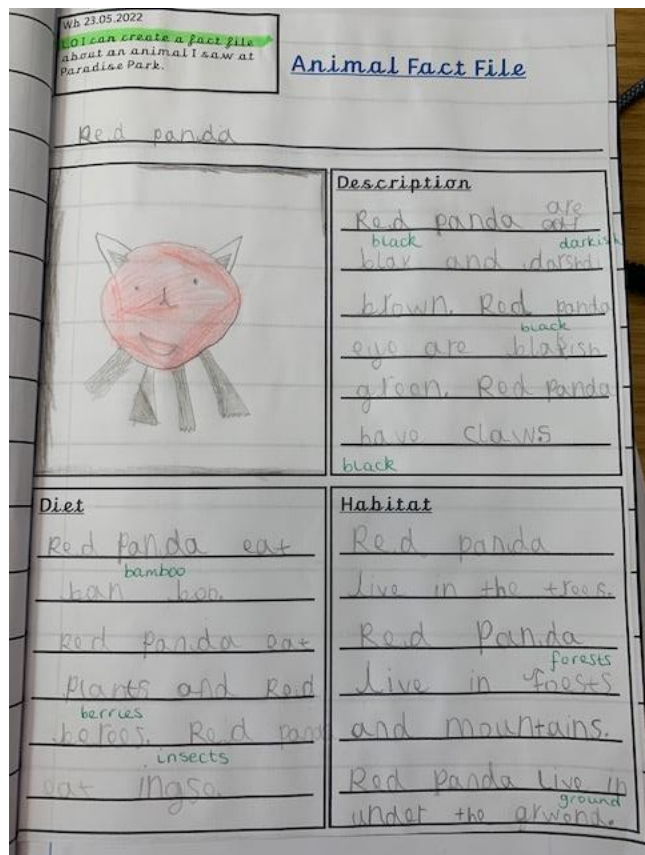 Wb 23.05.2022
LO I can create a fact file
about an animal I saw at
Paradise Park.
Animal Fact File
Red panda
Description
Red panda are
black darkish
blak and darshd
brown. Red panda
black
eye are blakish
green. Red Panda
have claws
black
Diet
Red Panda eat
bamboo
ban boo.
Red Panda eat
Plants and Red
berries
beroos. Red panda
insects
eat ingso.
Habitat
Red panda
live in the trees.
Red Panda
forests
live in foests
and mountains.
Red Panda live in
ground
under the grwond.